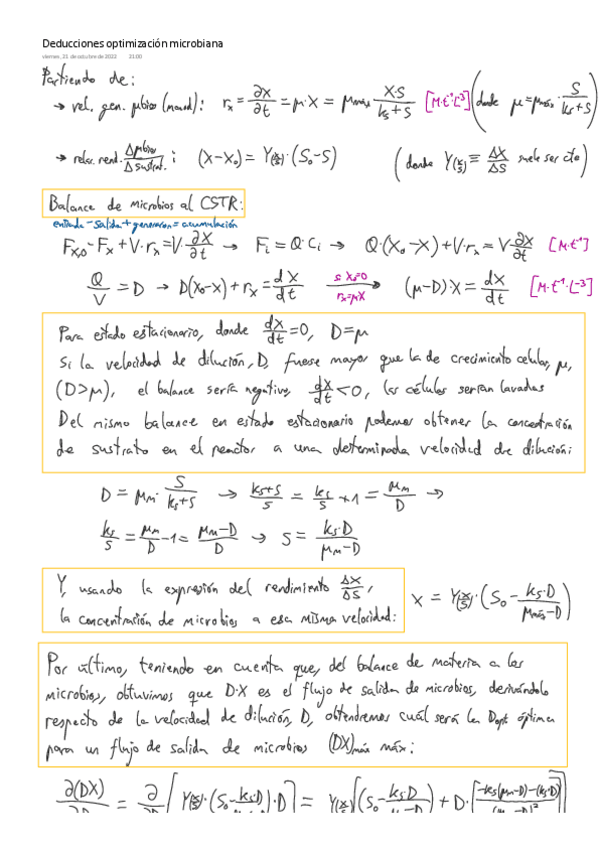 Deducciones optimización microbiana
viernes, 21 de octubre de 2022 21:00
Partiendo de:
→ vel. gen. μbios (monod): r_x = ∂X/∂t = μ·X = μmáx X·S/(ks+S) [M·t⁻¹·L⁻³] (donde μ=μmáx S/(ks+S))
→ relac. rend. Δμbios/Δsustrat.: (X-X₀) = Y(x/s)·(S₀-S) (donde Y(x/s) = ΔX/ΔS suele ser cte)
Balance de microbios al CSTR:
entrada - salida + generación = acumulación
Fx,0 - Fx + V·rx = V·∂X/∂t → Fi = Q·Ci → Q·(X₀-X) + V·rx = V ∂X/∂t [M·t⁻¹]
Q/V = D → D(X₀-X) + rx = dX/dt → s X₀=0 rx=μX (μ-D)·X = dX/dt [M·t⁻¹·L⁻³]
Para estado estacionario, donde dX/dt = 0, D=μ
Si la velocidad de dilución, D, fuese mayor que la de crecimiento celular, μ,
(D>μ), el balance sería negativo, dX/dt < 0, las células serían lavadas
Del mismo balance en estado estacionario podemos obtener la concentración
de sustrato en el reactor a una determinada velocidad de dilución:
D = μm · S/(ks+S) → (ks+S)/S = ks/S + 1 = μm/D →
ks/S = μm/D - 1 = (μm-D)/D → S = ks·D/(μm-D)
Y, usando la expresión del rendimiento ΔX/ΔS,
la concentración de microbios a esa misma velocidad:
X = Y(x/s)·(S₀ - ks·D/(μmáx-D))
Por último, teniendo en cuenta que, del balance de materia a los
microbios, obtuvimos que D·X es el flujo de salida de microbios, derivándolo
respecto de la velocidad de dilución, D, obtendremos cuál será la Dopt óptima
para un flujo de salida de microbios (DX)máx máx:
∂(DX)/∂D = ∂/ [Y(x/s)·(S₀ - ks·D)·D] = Y(x/s)[(S₀ - ksD/(μ-D)) + D·[-ks(μm-D)-(ks·D)/(μm-D)²